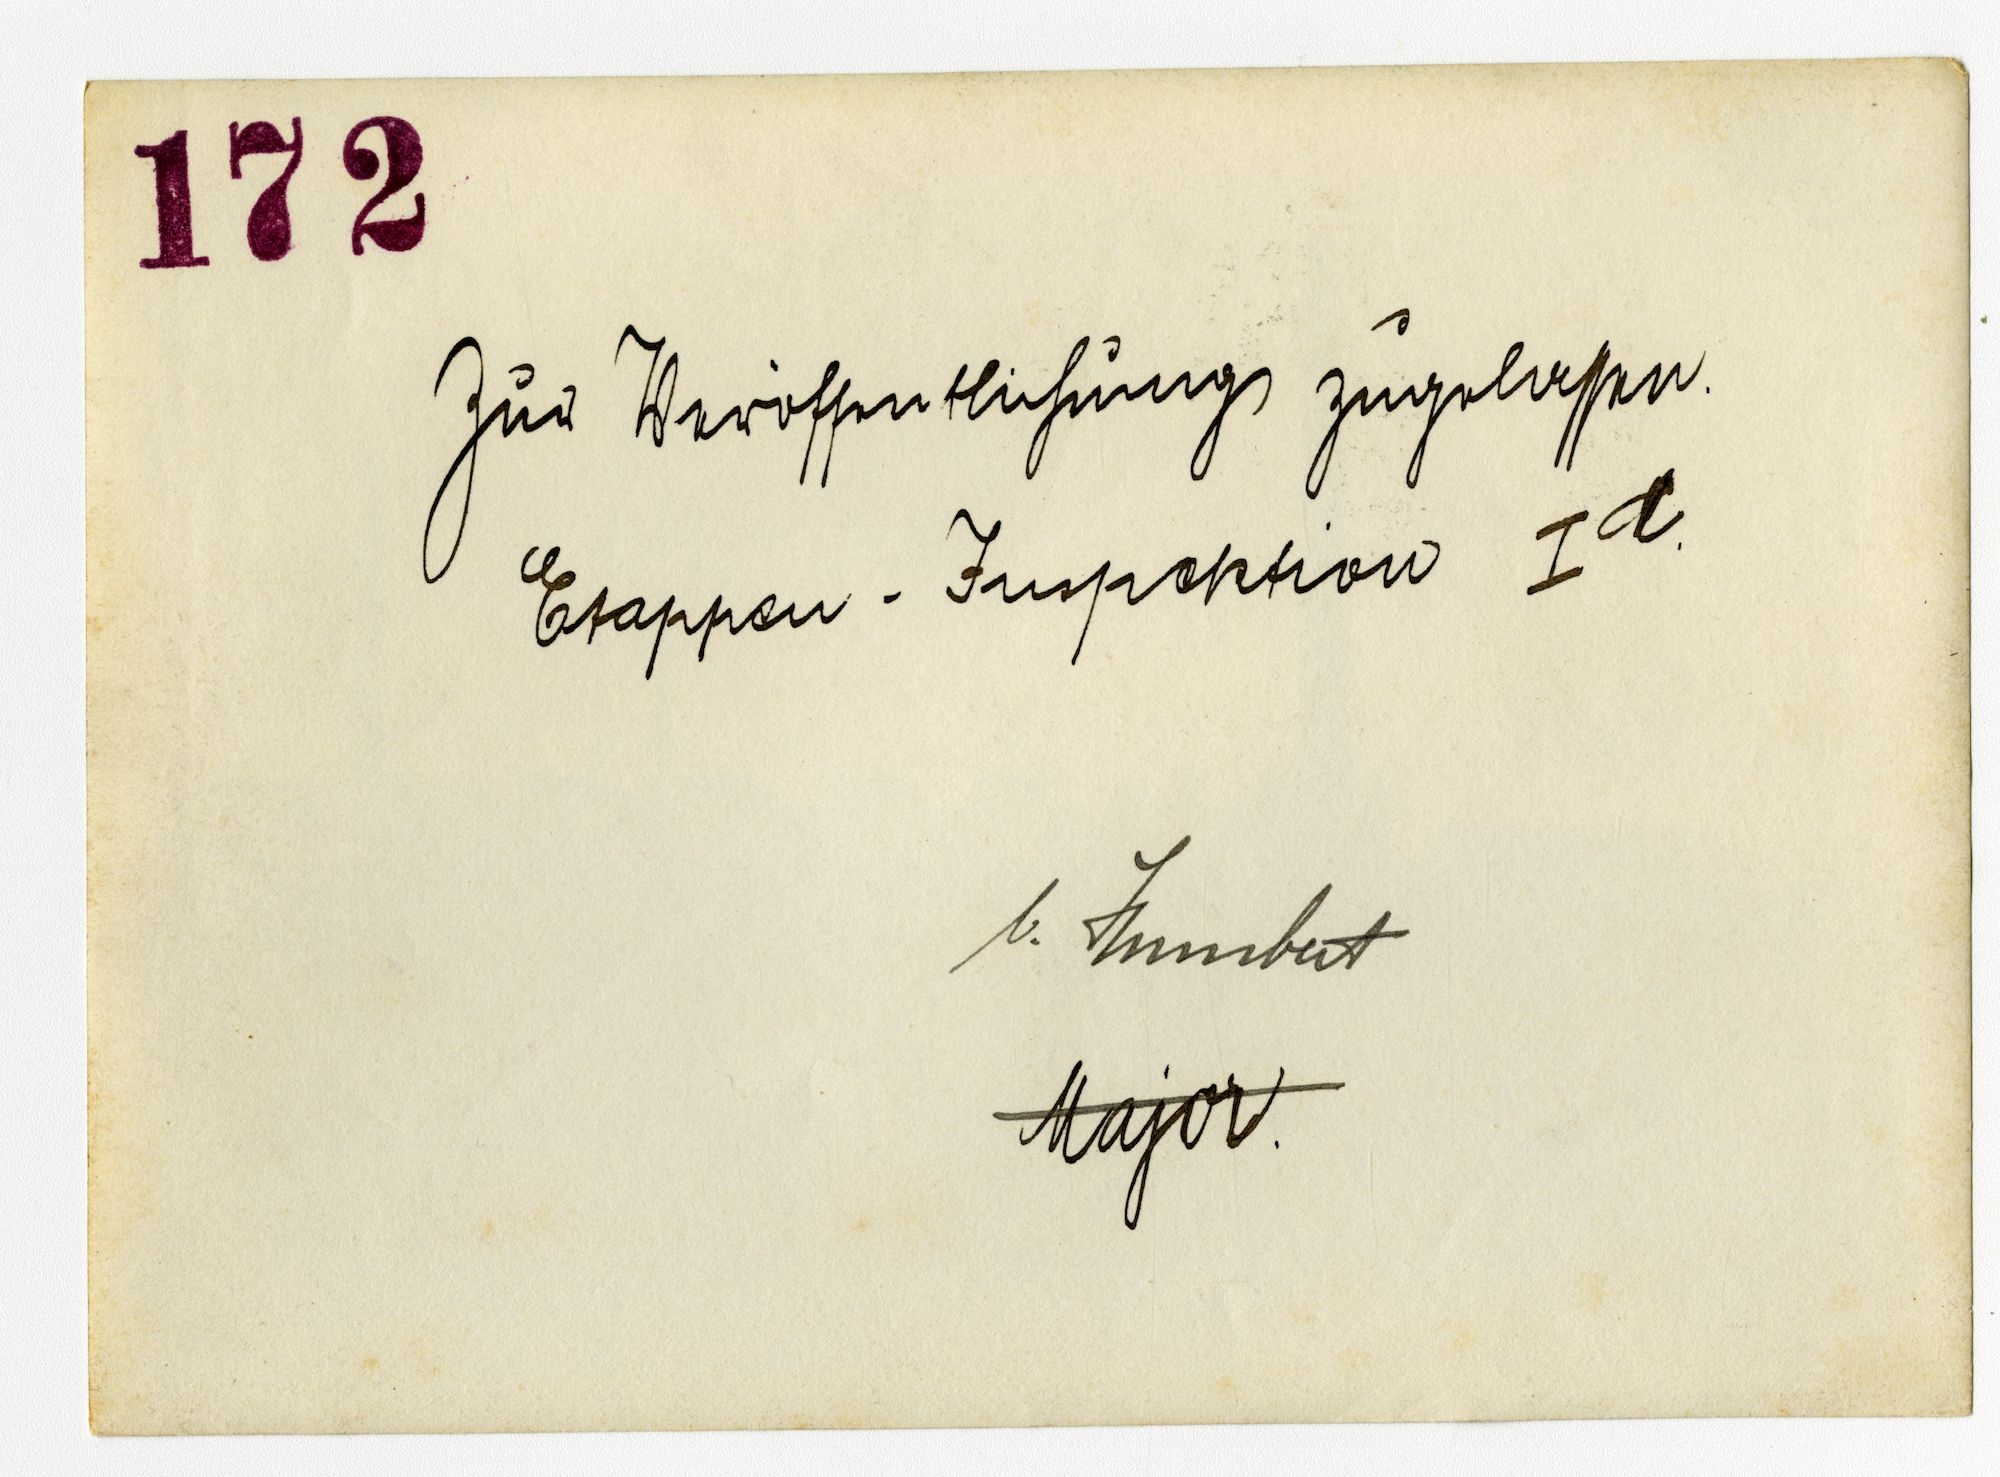 172
Zur Veröffentlichung zugelassen.
Etappen-Inspektion I d.
v. Humbert
Major.